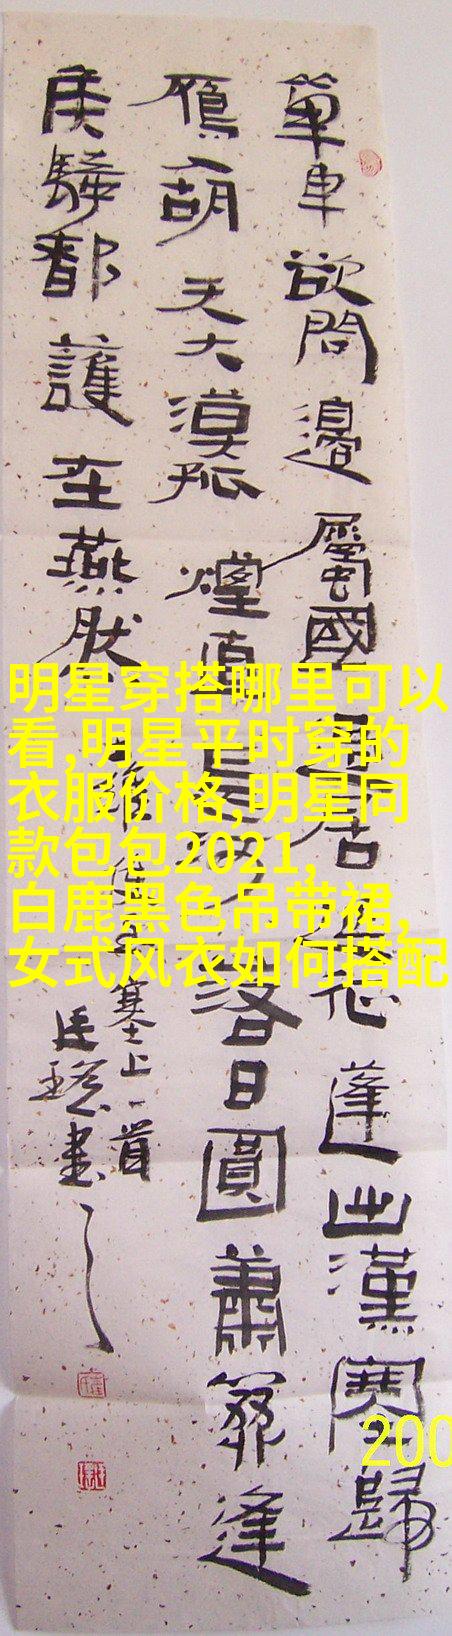 單車欲問邊屬國過居延征蓬出漢塞歸
雁入胡天大漠孤煙直長河落日圓蕭關逢
候騎都護在燕然
王維使至塞上一首
書
明星穿搭哪里可以
看,明星平时穿的
衣服价格,明星同
款包包2021,
白鹿黑色吊带裙,
女式风衣如何搭配
200